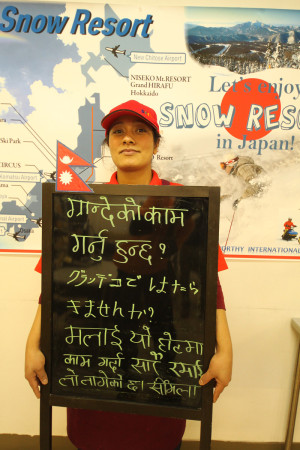 Snow Resort
New Chitose Airport
NISEKO Mt.RESORT
Grand HIRAFU
Hokkaido
Let's enjoy
SNOW RESO
in Japan!
Ski Park
CIRCUS
Resort
Airport
WORTHY INTERNATIONAL
ग्रान्देको काम
गर्नु हुन्छ?
グランデコで はたら
きませんか?
मलाई यो होटलमा
काम गर्दा साह्रै रमाई
लो लागेको छ।